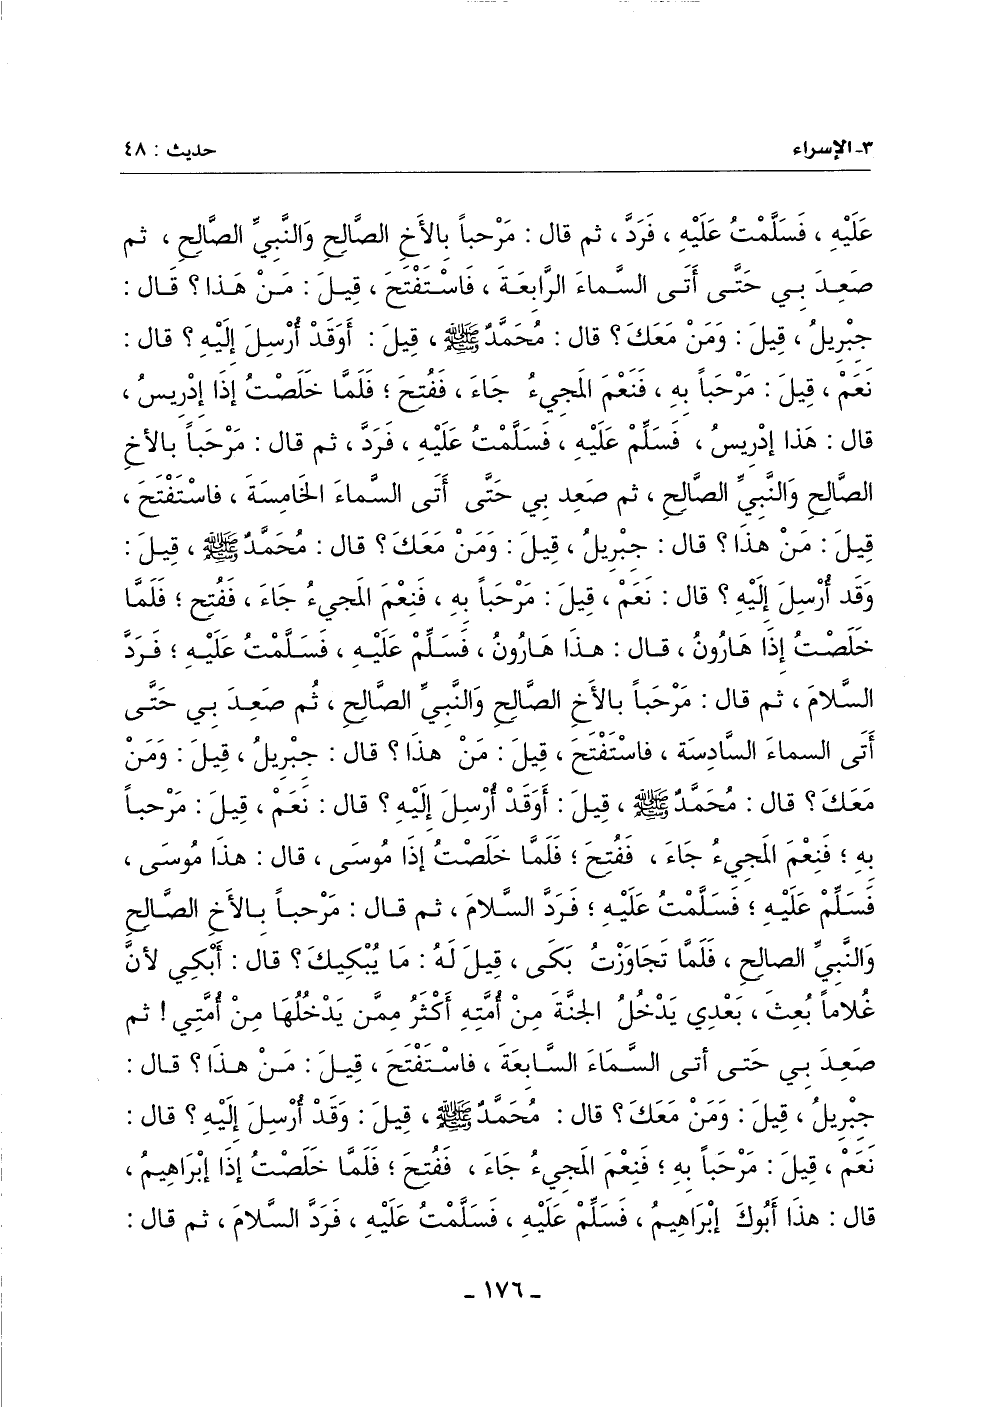 ٣- الإسراء حديث : ٤٨
عَلَيْهِ ، فَسَلَّمْتُ عَلَيْهِ ، فَرَدَّ ، ثم قال : مَرْحباً بالأَخِ الصَّالِحِ وَالنَّبِيِّ الصَّالِحِ ، ثم
صَعِدَ بِي حَتَّى أَتَى السَّماءَ الرَّابِعَةَ ، فَاسْتَفْتَحَ ، قِيلَ : مَنْ هَذا ؟ قَال :
جِبْرِيلُ ، قِيلَ : وَمَنْ مَعَكَ ؟ قال : مُحَمَّدٌ ﷺ ، قِيلَ : أَوَقَدْ أُرْسِلَ إِلَيْهِ ؟ قال :
نَعَمْ ، قِيلَ : مَرْحَباً بِهِ ، فَنَعْمَ المَجِيءُ جَاءَ ، فَفُتِحَ ؛ فَلَمَّا خَلَصْتُ إذَا إدْرِيسُ ،
قال : هَذا إدْرِيسُ ، فَسَلِّمْ عَلَيْهِ ، فَسَلَّمْتُ عَلَيْهِ ، فَرَدَّ ، ثم قال : مَرْحَباً بالأخِ
الصَّالِحِ وَالنَّبِيِّ الصَّالِحِ ، ثم صَعِد بي حَتَّى أَتَى السَّماءَ الخَامِسَةَ ، فاسْتَفْتَحَ ،
قِيلَ : مَنْ هذَا ؟ قال : جِبْرِيلُ ، قِيلَ : وَمَنْ مَعَكَ ؟ قال : مُحَمَّدٌ ﷺ ، قِيلَ :
وَقَد أُرْسِلَ إِلَيْهِ ؟ قال : نَعَمْ ، قِيلَ : مَرْحَباً بِهِ ، فَنِعْمَ المَجِيءُ جَاءَ ، فَفُتِحَ ؛ فَلَمَّا
خَلَصْتُ إذَا هَارُونُ ، قَال : هذا هَارُونُ ، فَسَلِّمْ عَلَيْهِ ، فَسَلَّمْتُ عَلَيْهِ ؛ فَرَدَّ
السَّلامَ ، ثم قال : مَرْحَباً بالأَخِ الصَّالِحِ وَالنَّبِيِّ الصَّالِحِ ، ثُم صَعِدَ بي حَتَّى
أَتَى السماءَ السَّادِسَةَ ، فاسْتَفْتَحَ ، قِيلَ : مَنْ هذَا ؟ قال : جِبْرِيلُ ، قِيلَ : وَمَنْ
مَعَكَ ؟ قال : مُحَمَّدٌ ﷺ ، قِيلَ : أَوَقَدْ أُرْسِلَ إِلَيْهِ ؟ قال : نَعَمْ ، قِيلَ : مَرْحباً
بِهِ ؛ فَنِعْمَ المَجِيءُ جَاءَ ، فَفُتِحَ ؛ فَلَمَّا خَلَصْتُ إذَا مُوسَى ، قال : هذا مُوسَى ،
فَسَلِّمْ عَلَيْهِ ؛ فَسَلَّمْتُ عَلَيْهِ ؛ فَرَدَّ السَّلامَ ، ثم قال : مَرْحباً بالأخِ الصَّالِحِ
وَالنَّبِيِّ الصالحِ ، فَلَمَّا تَجَاوَزْتُ بَكَى ، قِيلَ لَهُ : مَا يُبْكِيكَ ؟ قال : أَبْكِي لأنَّ
غُلاماً بُعِثَ ، بَعْدِي يَدْخُلُ الجَنَّةَ مِنْ أُمَّتِهِ أَكْثَرُ مِمَّن يَدْخُلُهَا مِنْ أُمَّتِي ! ثم
صَعِدَ بي حَتى أتى السَّمَاءَ السَّابِعَةَ ، فاسْتَفْتَحَ ، قِيلَ : مَنْ هذَا ؟ قال :
جِبْرِيلُ ، قِيلَ : وَمَنْ مَعَكَ ؟ قال : مُحَمَّدٌ ﷺ ، قِيلَ : وَقَدْ أُرْسِلَ إِلَيْهِ ؟ قال :
نَعَمْ ، قِيلَ : مَرْحَباً بِهِ ؛ فَنِعْمَ المَجِيءُ جَاءَ ، فَفُتِحَ ؛ فَلَمَّا خَلَصْتُ إذَا إبْرَاهِيمُ ،
قال : هذَا أَبُوكَ إبْرَاهِيمُ ، فَسَلِّمْ عَلَيْهِ ، فَسَلَّمْتُ عَلَيْهِ ، فَرَدَّ السَّلامَ ، ثم قال :
- ١٧٦ -